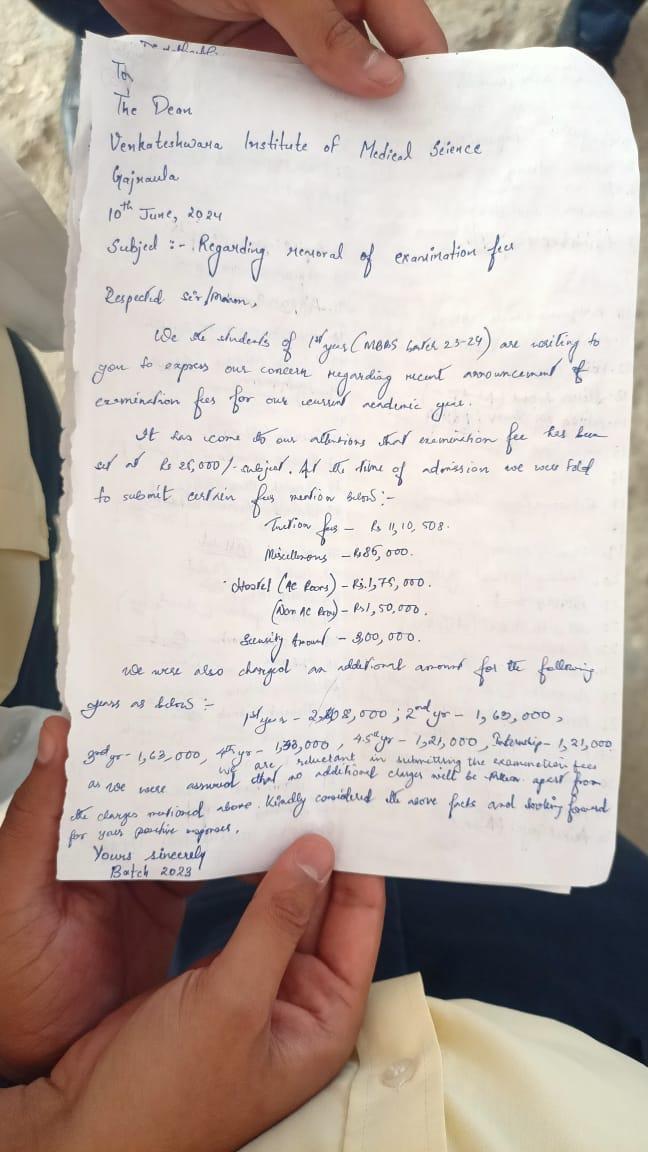 To,
The Dean
Venkateshwara Institute of Medical Science
Gajraula
10th June, 2024
Subject :- Regarding removal of examination fees
Respected Sir/Mam,
We the students of 1st year (MBBS batch 23-24) are writing to
you to express our concern regarding recent announcement of
examination fees for our current academic year.
It has come to our attentions that examination fee has been
set at Rs 25,000/- subject. At the time of admission we were told
to submit certain fees mention below:-
Tuition fees - Rs 11,10,508.
Miscellenous - Rs 85,000.
Hostel (AC Rooms) - Rs.1,75,000.
(Non AC Room) - Rs 1,50,000.
Security Amount - 3,00,000.
We were also charged an additional amount for the following
years as below :-
1st year - 2,08,000 ; 2nd yr - 1,63,000,
3rd yr - 1,63,000, 4th yr - 1,33,000, 4.5th yr - 1,21,000, Internship - 1,21,000
We are, reluctant in submitting the examination fees
as we were assured that no additional charges will be taken apart from
the charges mentioned above. Kindly considered the above facts and looking forward
for your positive responses.
Yours sincerely
Batch 2023